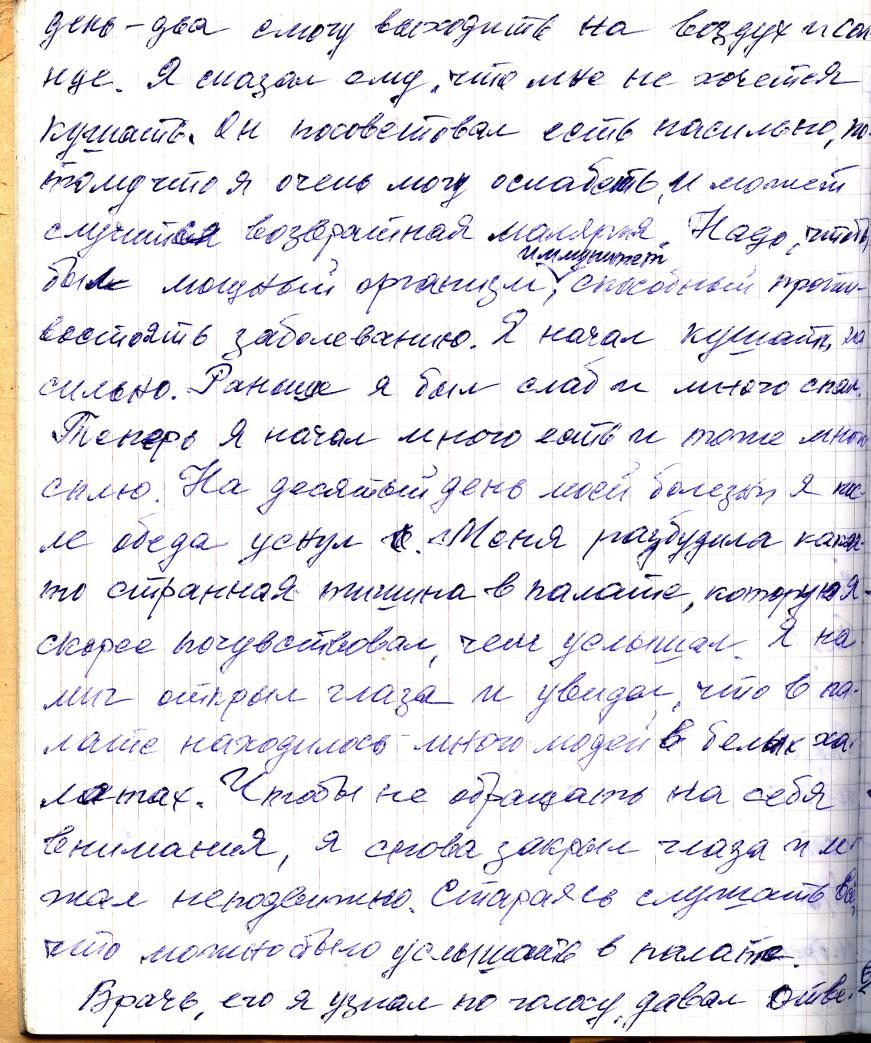 день-два смогу выходить на воздух и сол
нце. Я сказал ему, что мне не хочется
кушать. Он посоветовал есть насильно, по-
тому что я очень могу ослабеть, и может
случится возвратная малярия. Надо, чтобы
иммунитет
был мощный организм, способный проти-
востоять заболеванию. Я начал кушать на
сильно. Раньше я был слаб и много спал.
Теперь я начал много есть и тоже много
сплю. На десятый день моей болезни я пос-
ле обеда уснул. Меня разбудила какая-
то странная тишина в палате, которую я
скорее почувствовал, чем услышал. Я на
миг открыл глаза и увидел, что в па-
лате находилось много людей в белых ха-
латах. Чтобы не обращать на себя
внимания, я снова закрыл глаза и ле
жал неподвижно. Стараясь слушать всё,
что можно было услышать в палате.
Врачь, его я узнал по голосу, давал отве-